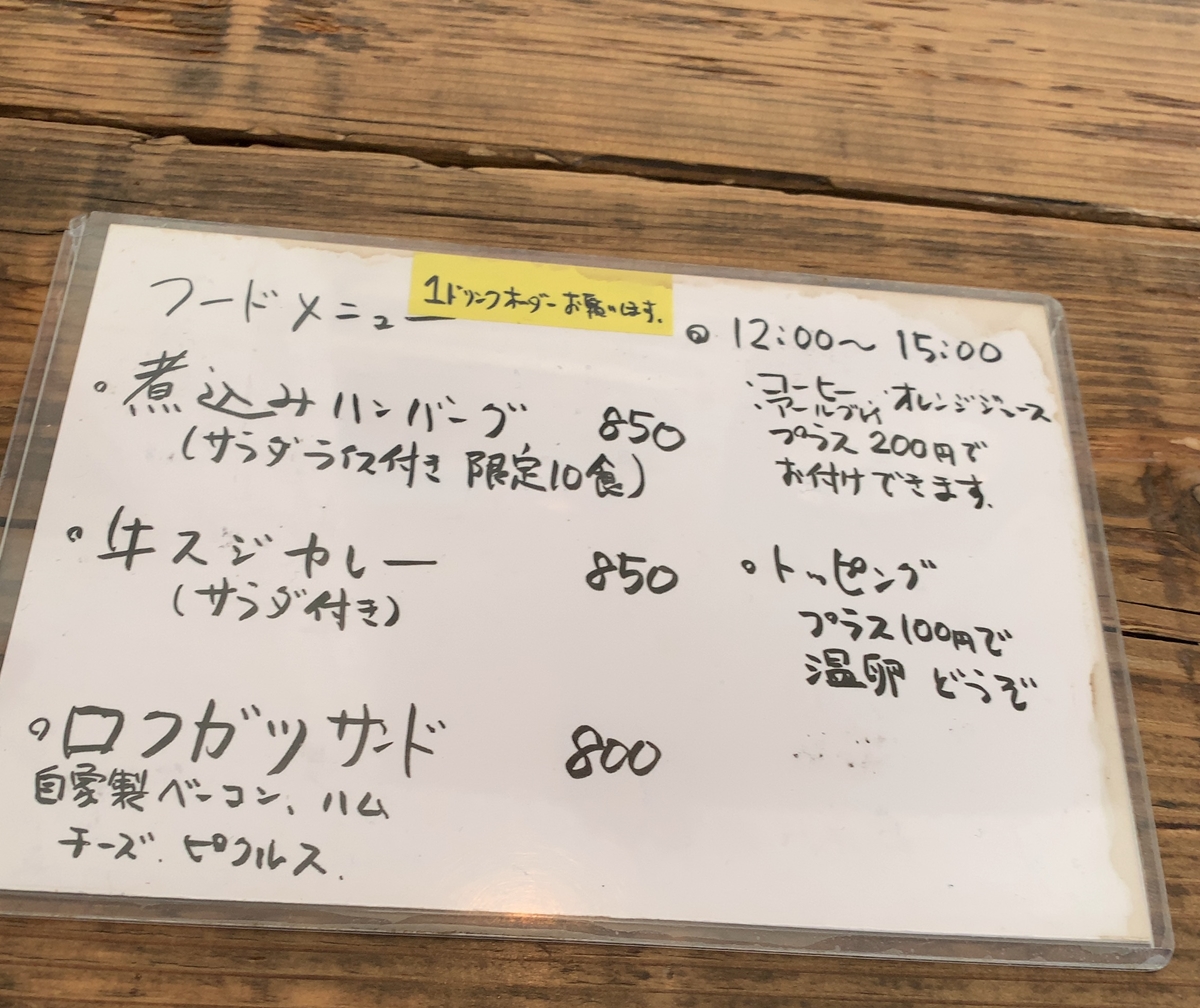 フードメニュー
1ドリンクオーダーお願いします.
煮込みハンバーグ 850
(サラダライス付き 限定10食)
牛スジカレー 850
(サラダ付き)
ロフガツサンド 800
自家製ベーコン、ハム
チーズ.ピクルス.
12:00〜15:00
・コーヒー ・オレンジジュース
・アールグレイ
プラス200円で
お付けできます.
トッピング
プラス100円で
温卵 どうぞ